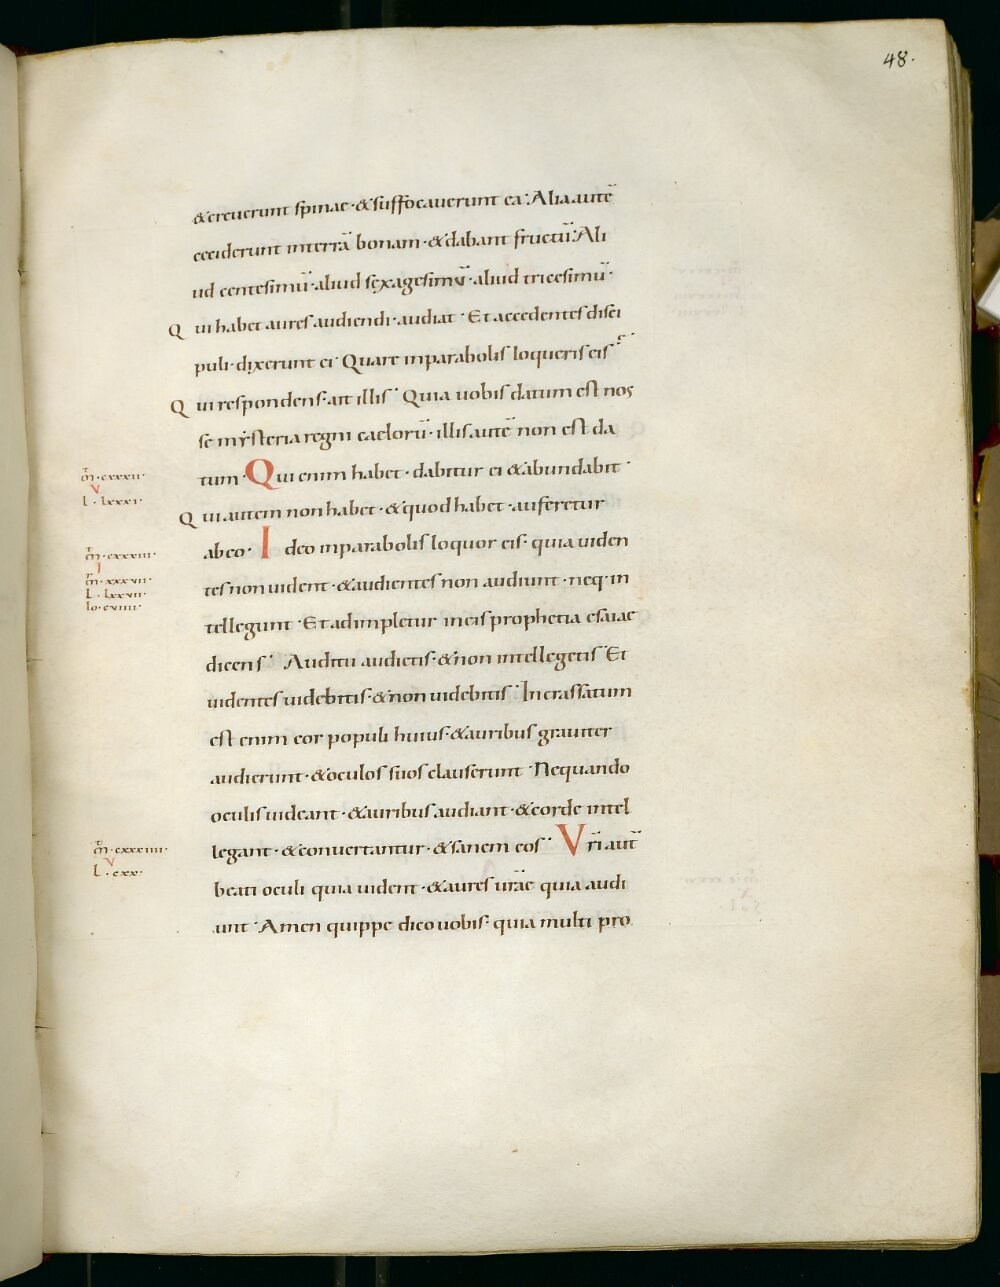 48.
&creuerunt spinae·&suffocauerunt ea·Aliaautē
ceciderunt interrā bonam·&dabant fructū·Ali
ud centesimū·aliud sexagesimū·aliud tricesimū·
Qui habet aures audiendi·audiat·Et accedentes disci
puli·dixerunt ei·Quare inparabolis loqueris eis·
Qui respondens·ait illis·Quia uobis datum est nos
se mẏsteria regni caelorū·illis autē non est da
tum·Qui enim habet·dabitur ei &abundabit·
Qui autem non habet·&quod habet·auferetur
abeo·Ideo inparabolis loquor eis·quia uiden
tes non uident·&audientes non audiunt·neq·in
tellegunt·Et adimpletur ineis prophetia esaiae
dicens·Auditu audietis·&non intellegetis·Et
uidentes uidebitis·&non uidebitis·Incrassatum
est enim cor populi huius·&auribus grauiter
audierunt·&oculos suos clauserunt·Nequando
oculis uideant·&auribus audiant·&corde intel
legant·&conuertantur·&sanem eos·Vr̄i aut̄
beati oculi quia uident·&aures ur̄ae quia audi
unt·Amen quippe dico uobis·quia multi pro
m̄·cxxxii·
v
l·lxxxi·
m̄·cxxxiii·
i
m̄·xxxvii·
l·lxxvii·
io·cviiii·
m̄·cxxxiiii·
v
l·cxx·